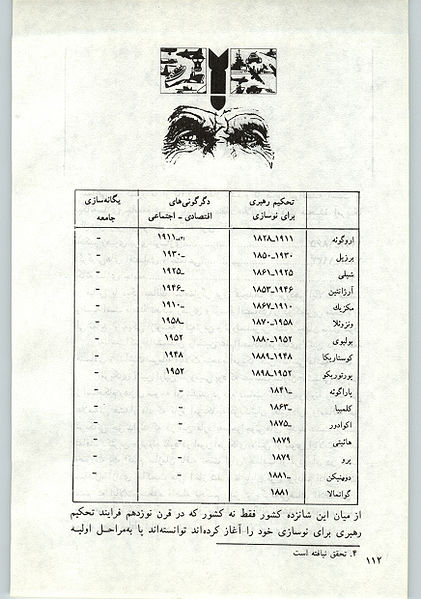 تحکیم رهبری برای نوسازی دگرگونی‌های اقتصادی ـ اجتماعی یگانه‌سازی جامعه
اروگوئه ۱۸۲۸ـ۱۹۱۱ ـ۱۹۱۱ -
برزیل ۱۸۵۰ـ۱۹۳۰ ـ۱۹۳۰ -
شیلی ۱۸۶۱ـ۱۹۲۵ ـ۱۹۲۵ -
آرژانتین ۱۸۵۳ـ۱۹۴۶ ـ۱۹۴۶ -
مکزیك ۱۸۶۷ـ۱۹۱۰ ـ۱۹۱۰ -
ونزوئلا ۱۸۷۰ـ۱۹۵۸ ـ۱۹۵۸ -
بولیوی ۱۸۸۰ـ۱۹۵۲ ۱۹۵۲ -
کوستاریکا ۱۸۸۹ـ۱۹۴۸ ۱۹۴۸ -
پورتوریکو ۱۸۹۸ـ۱۹۵۲ ۱۹۵۲ -
پاراگوئه ۱۸۴۱ـ - -
کلمبیا ۱۸۶۳ـ - -
اکوادور ۱۸۷۵ـ - -
هائیتی ۱۸۷۹ - -
پرو ۱۸۷۹ - -
دومنیکن ۱۸۸۱ـ - -
گواتمالا ۱۸۸۱
از میان این شانزده کشور فقط نه کشور که در قرن نوزدهم فرایند تحکیم
رهبری برای نوسازی خود را آغاز کرده‌اند توانسته‌اند پا به‌مراحل اولیه
۴. تحقق نیافته است
۱۱۲